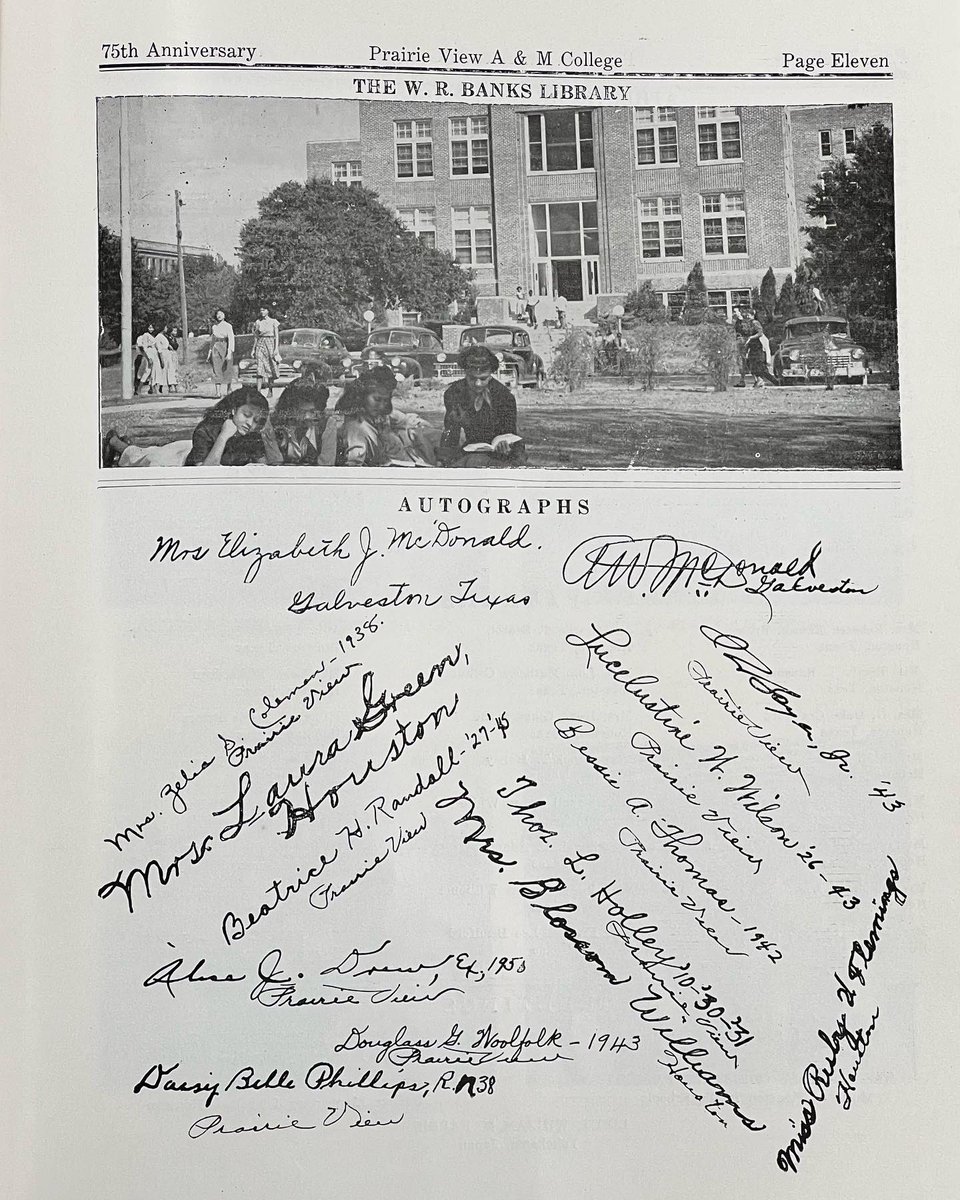 75th Anniversary
Prairie View A & M College
Page Eleven
THE W. R. BANKS LIBRARY
AUTOGRAPHS
Mrs Elizabeth J. McDonald.
Galveston Texas
McDonald
Galveston
Mrs. Zelia Coleman - 1938.
Prairie View
Mrs. Laura Green,
Houston
Beatrice H. Randall - '27-'45
Prairie View
J. Drew, Ex, 1953
Prairie View
Douglass G. Woolfolk - 1943
Prairie View
Daisy Belle Phillips, R.N 38
Prairie View
Jr. '43
Prairie View
W. Wilson '26 - 43
Prairie View
Bessie A. Thomas - 1942
Prairie View
Thos. L. Holley '10-'30-'31
Prairie View
Mrs. Blossom Williams
Houston
Miss Ruby H Flemings
Houston